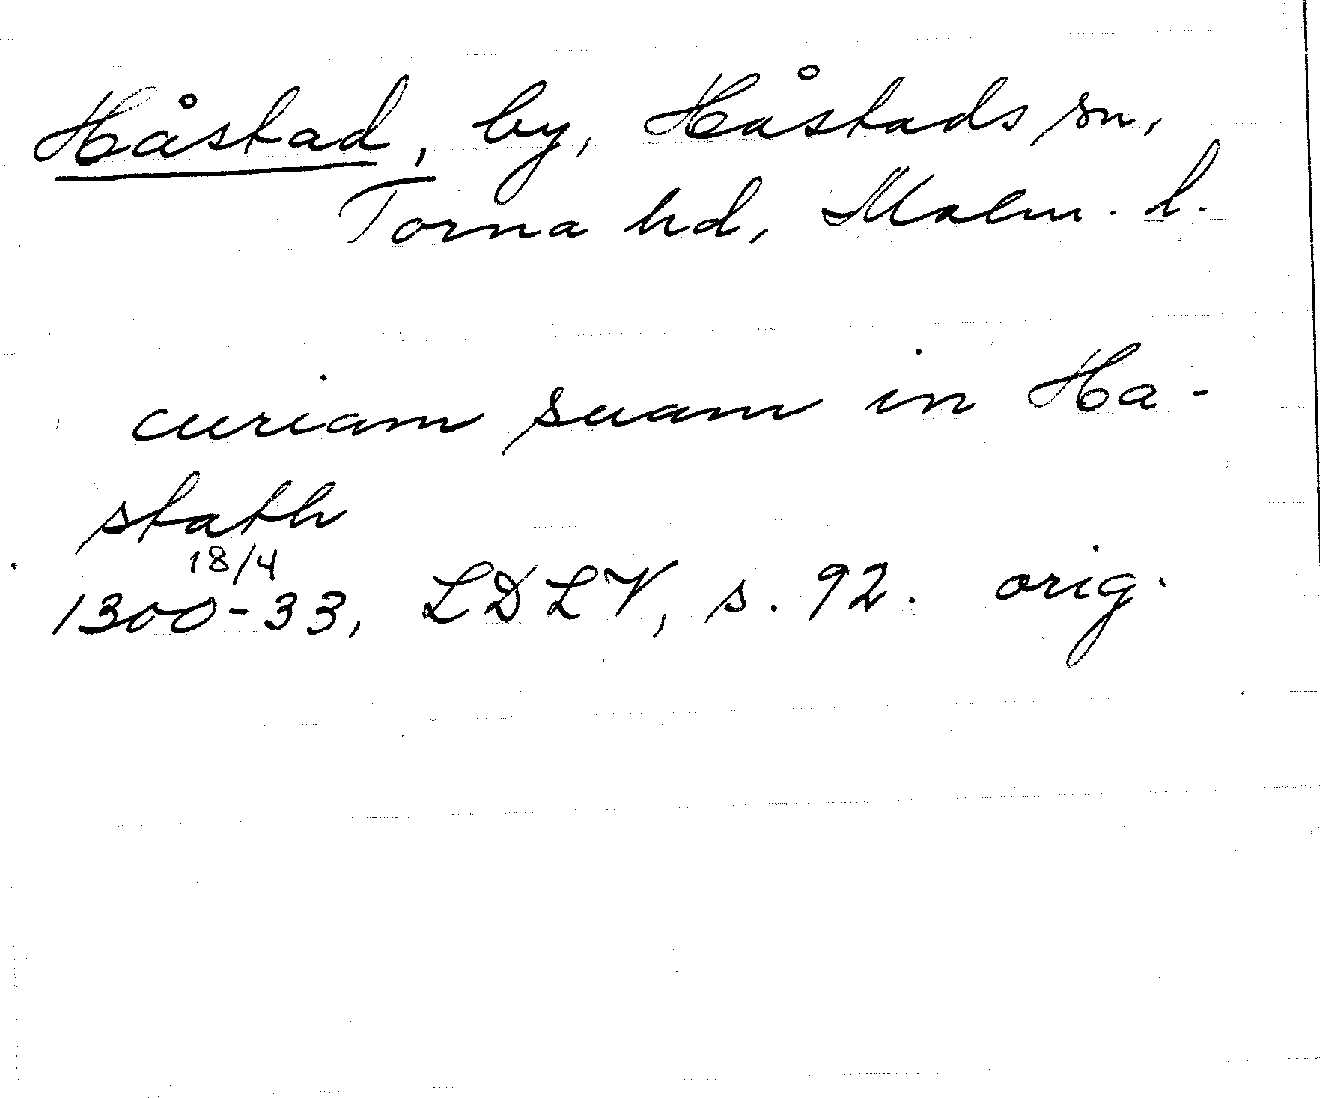 Håstad, by, Håstads sn,
Torna hd, Malm. l.
curiam suam in Ha-
stath
18/4
1300-33, LDLV, s. 92. orig.